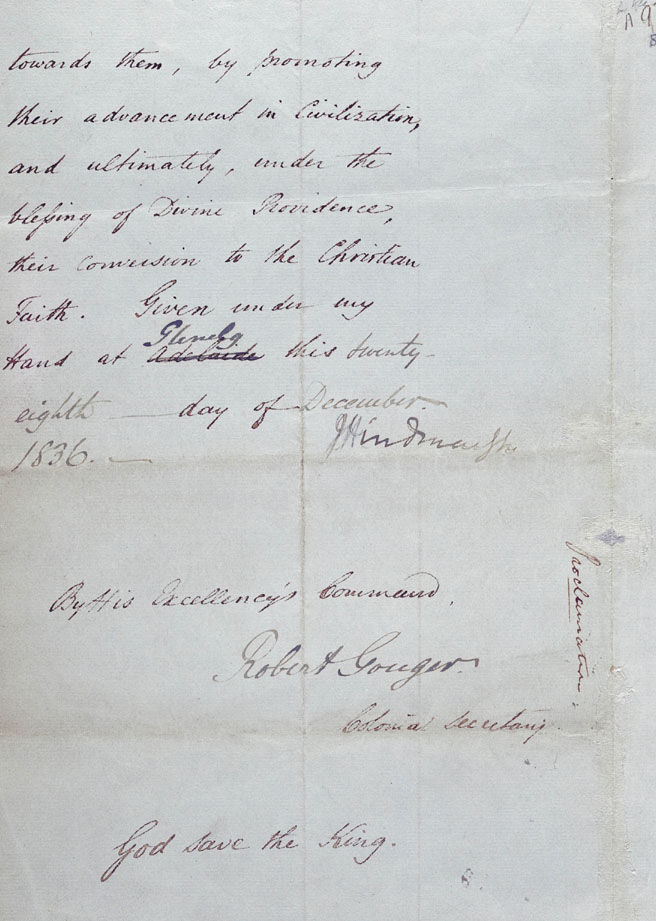 towards them, by promoting
their advancement in Civilization,
and ultimately, under the
blessing of Divine Providence,
their conversion to the Christian
Faith. Given under my
Glenelg
Hand at Adelaide this twenty-
eighth — day of December.
J Hindmarsh
1836. —
By His Excellency's Command,
Robert Gouger.
Colonial Secretary.
God save the King.
Proclamation.